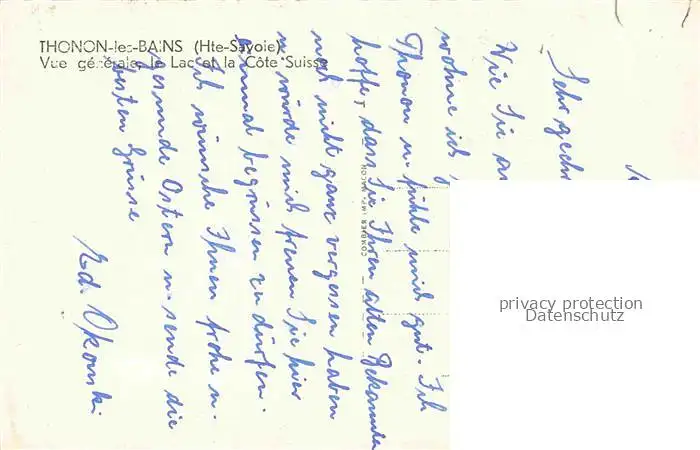 THONON-les-BAINS (Hte-Savoie)
Vue générale, le Lac et la Côte Suisse
Sehr geehr
Wie Sie
wohne ich
Thonon u. fühle mich gut. Ich
hoffe, dass Sie Ihren alten Bekannten
noch nicht ganz vergessen haben
u. würde mich freuen Sie hier
einmal begrüssen zu dürfen.
Ich wünsche Ihnen frohe u.
gesunde Ostern u. sende die
besten Grüsse
Ed.
COMBIER IMP. MACON
privacy protection
Datenschutz